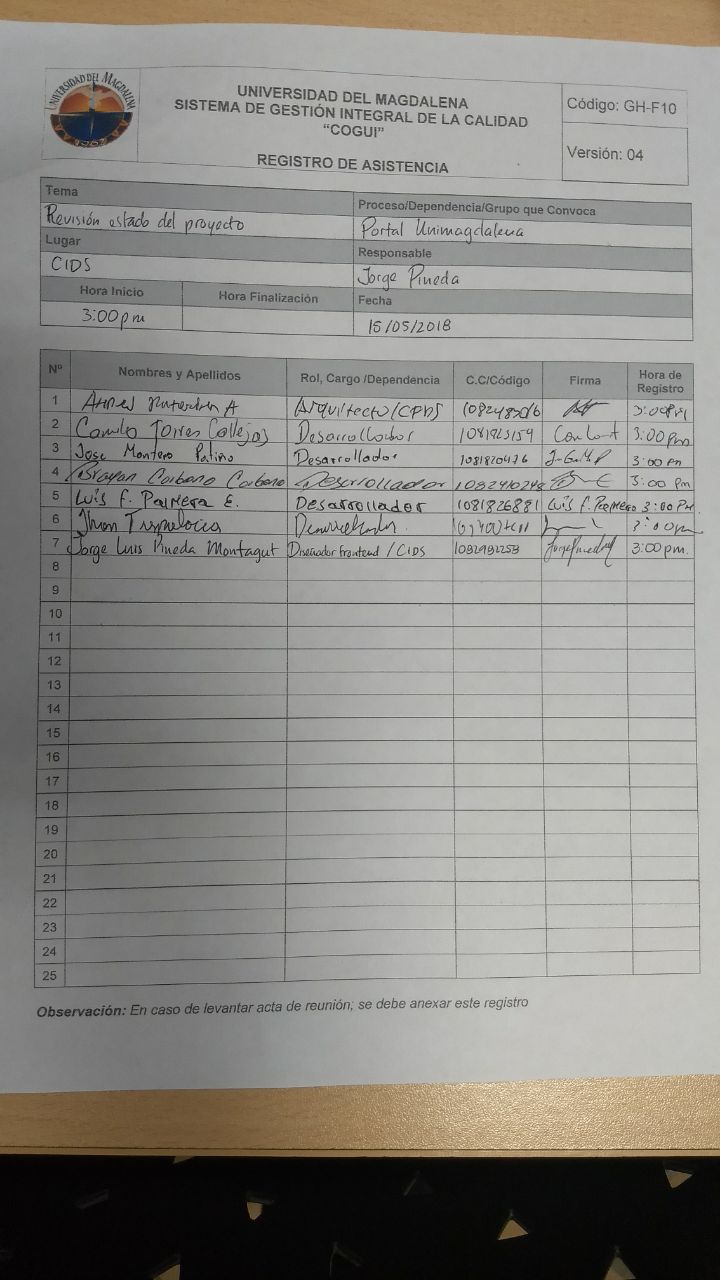 UNIVERSIDAD DEL MAGDALENA
UNIVERSIDAD DEL MAGDALENA
SISTEMA DE GESTIÓN INTEGRAL DE LA CALIDAD
“COGUI”
REGISTRO DE ASISTENCIA
Código: GH-F10
Versión: 04
Tema
Proceso/Dependencia/Grupo que Convoca
Revisión estado del proyecto
Portal Unimagdalena
Lugar
Responsable
CIDS
Jorge Pineda
Hora Inicio Hora Finalización Fecha
3:00pm 15/05/2018
Nº Nombres y Apellidos Rol, Cargo /Dependencia C.C/Código Firma Hora de Registro
1 A Arquitecto/CIDS 3:00PM
2 Camilo Torres Callejas Desarrollador 3:00pm
3 Jose Montero Patiño Desarrollador 1081820476 3:00 Pm
4 Brayan Carbono Carbono Desarrollador 3:00 Pm
5 Luis F. Palmera E. Desarrollador 1081826881 Luis F. Palmera 3:00 Pm
6 Jhon 3:00pm
7 Jorge Luis Pineda Montagut Diseñador frontend / CIDS Jorge Pineda M 3:00pm.
8
9
10
11
12
13
14
15
16
17
18
19
20
21
22
23
24
25
Observación: En caso de levantar acta de reunión; se debe anexar este registro